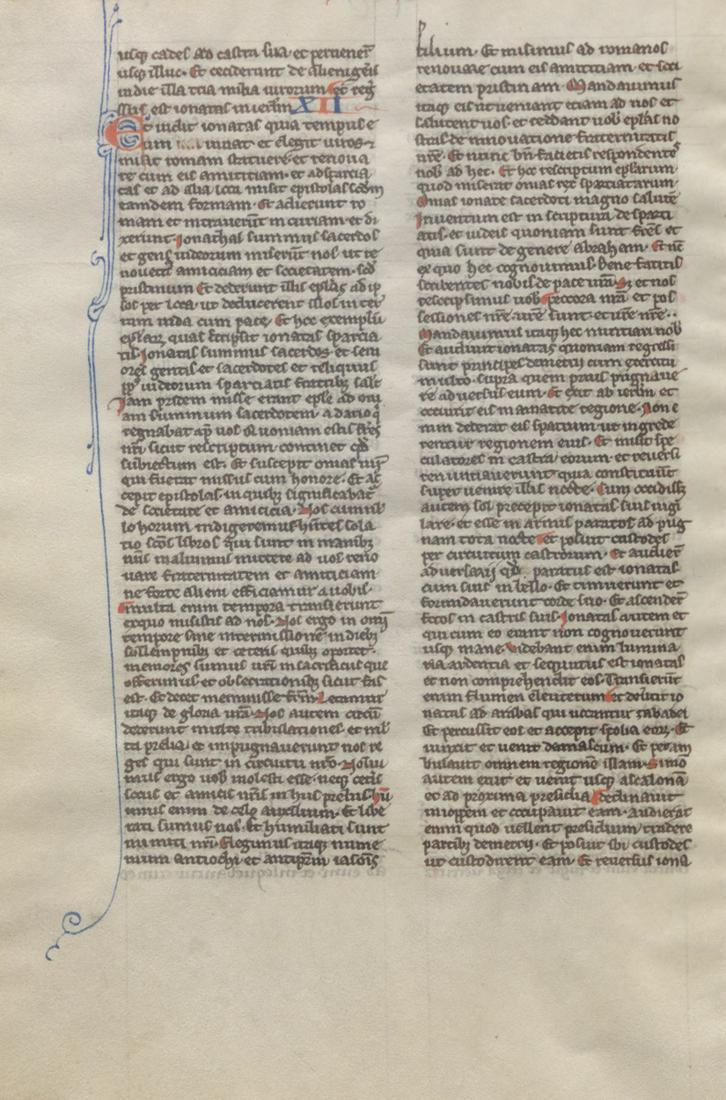 usq cades ad castra sua et pervener̄t
usq illuc. Et ceciderunt de alienigēis
in die illa tria milia virorum et reꝯ
sus est ionatas in ierlm XII
Et vidit ionatas quia tempus e
um iuuat et elegit viros ⁊
misit romam statuere et renoua
re cum eis amicitiam et ad sparcia
tas et ad alia loca misit epistolas scdm
eamdem formam. Et abierunt ro
mam et intrauerūt in curiam et di
xerunt Jonathas summus sacerdos
et gens iudeorum miserūt nos ut re
nouem̄ amiciciam et societatem scd̄
pristinum Et dederunt illis eplas ad ip
sos per loca ut deducerent illos in ter
ram iuda cum pace. Et hoc exemplū
eplar̄ quas scripsit ionatas sparcia
tis Jonatas summus sacerdos et seni
ores gentis et sacerdotes et reliquus
pp̄ls iudeorum sparciatis fratrib; salt̄
Jam pridem misse erant eple ad oni
am summum sacerdotem a dario q̄
regnabat ap̄ vos quoniam estis fr̄es
nr̄i sicut rescriptum continet qd̄
subiectum est. Et suscepit onias uiꝝ
qui fuerat missus cum honore. Et ac
cepit epistolas in quib; significabat̄
de societate et amicicia. Nos cum nih̄
lo horum indigeremus hn̄tes sola
tio sc̄os libros qui sunt in manib;
nr̄is maluimus mittere ad vos reno
vare fraternitatem et amiciciam
ne forte alieni efficiamur a vobis.
multa enim tempora transierunt
exquo misistis ad nos. Nos ergo in om̄i
tempore sine intermissione in dieb;
sollempnib; et ceteris quib; oportet.
memores sumus vr̄i in sacrificiis que
offerimus et obseruationib; sicut fas
est. Et decet meminisse fr̄m. Letamur
itaq; de gloria vr̄a. Nos autem circū
dederunt multe tribulationes et ml̄
ta prelia et impugnauerunt nos re
ges qui sunt in circuitu nr̄o. Nolui
mus ergo uob̄ molesti esse neq; ceteris
sociis et amicis nr̄is in hiis preliis hū
imus enim de celo auxilium. Et libe
rati sumus nos. Et humiliati sunt
inimici nr̄i. Elegimus itaq; nume
nium antiochi et antipr̄m iasonis
filium. Et misimus ad romanos
renouare cum eis amicitiam et soci
etatem pristinam. Mandauimus
itaq; eis ut veniant etiam ad nos et
salutent uos et reddant uob̄ eplas no
stras de innouatione fraternitatis
nr̄e. Et nunc bn̄ facietis respondentes
nob̄ ad hec. Et hoc rescriptum eplarum
quod miserat onias rex sparciatarum
Onias ionate sacerdoti magno salutē
Inuentum est in scriptura de sparci
atis et iudeis quoniam sunt fr̄es et
quia sunt de genere abraham. Et nc̄
ex quo hec cognouimus bene facitis
scribentes nobis de pace vr̄a. Sȝ et nos
rescripsimus uob̄ peccora nr̄a et pos
sessiones nr̄e vr̄e sunt et vr̄e nr̄e..
Mandauimus itaq; hec nuntiari nob̄
Et audiuit ionatas quoniam regressi
sunt principes demetrii cum exercitu
multo supra quem prius pugnaue
re aduersus eum. Et exiit ab ierlm et
occurrit eis in amatite regione. Non e
nim dederat eis spatium ut ingrede
rentur regionem eius. Et misit spe
culatores in castra eorum et reuersi
renuntiauerunt quia constituūt
superuenire illis nocte. Cum occidiss;
autem sol precepit ionatas suis uigi
lare et esse in armis paratos ad pug
nam tota nocte et posuit custodes
per circuitum castrorum. Et audier̄t
aduersarii qd̄ paratus est ionatas
cum suis in bello. Et timuerunt et
formidauerunt corde suo. Et ascender̄t
focos in castris suis. Jonatas autem et
qui cum eo erant non cognouerunt
usq; mane. Videbant enim lumina
ria ardentia et sequutus est ionatas
et non comprehendit eos. Transierūt
enim flumen eleuterum et diuertit io
natas ad arabas qui uocantur zabadei
Et percussit eos et accepit spolia eoꝝ. Et
iunxit et uenit damascum. Et peram
bulauit omnem regionē illam. Simo
autem exiit et uenit usq; ascalonā
et ad proxima presidia. Declinauit
in ioppen et occupauit eam. audierat
enim quod uellent presidium tradere
partib; demetrii. Et posuit ibi custodes
ut custodirent eam. Et reuersus iona